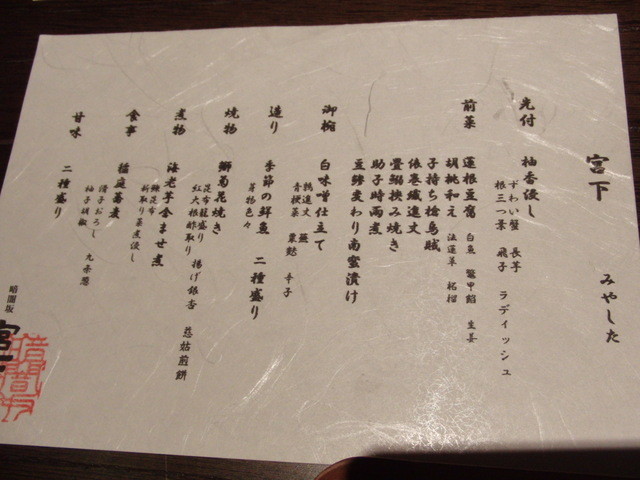 宮下 みやした
先付 柚香浸し
ずわい蟹 長芋
根三つ葉 飛子 ラディッシュ
前菜 蓮根豆腐 白魚 鼈甲餡 生姜
胡桃和え 法蓮草 柘榴
子持ち槍烏賊
俵巻繊進丈
畳鰯挟み焼き
助子時雨煮
豆鯵変わり南蛮漬け
御椀 白味噌仕立て
鶉進丈 蕪
青梗菜 粟麩 辛子
造り 季節の鮮魚 二種盛り
芽物色々
焼物 鰤菊花焼き
昆布籠盛り 揚げ銀杏 慈姑煎餅
紅大根酢取り
煮物 海老芋含ませ煮
糠昆布
針取り菜煮浸し
食事 稲庭蕎麦
滑子おろし
柚子胡椒 九条葱
甘味 二種盛り
暗闇坂
宮